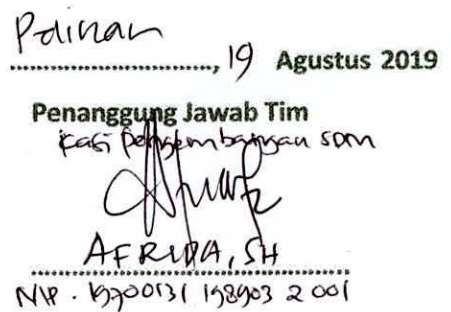 ..............................., 19 Agustus 2019
Penanggung Jawab Tim
Kasi Pengembangan SDM
AFRIDA, SH
NIP. 19700131 198903 2 001